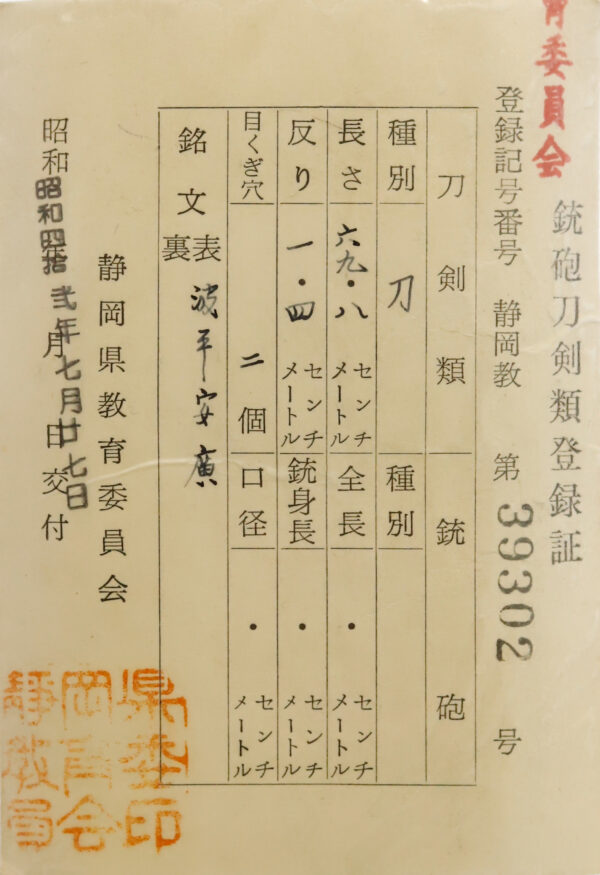 育委員会
銃砲刀剣類登録証
登録記号番号 静岡教 第 39302 号
刀剣類 銃砲
種別 刀 種別
長さ 六九・八 センチメートル 全長 ・ センチメートル
反り 一・四 センチメートル 銃身長 ・ センチメートル
目くぎ穴 二個 口径 ・ センチメートル
銘文 表 波平安廣
裏
静岡県教育委員会
昭和 年 月 日交付
昭和四拾弐年七月廿七日
県委印
岡育会
静教員